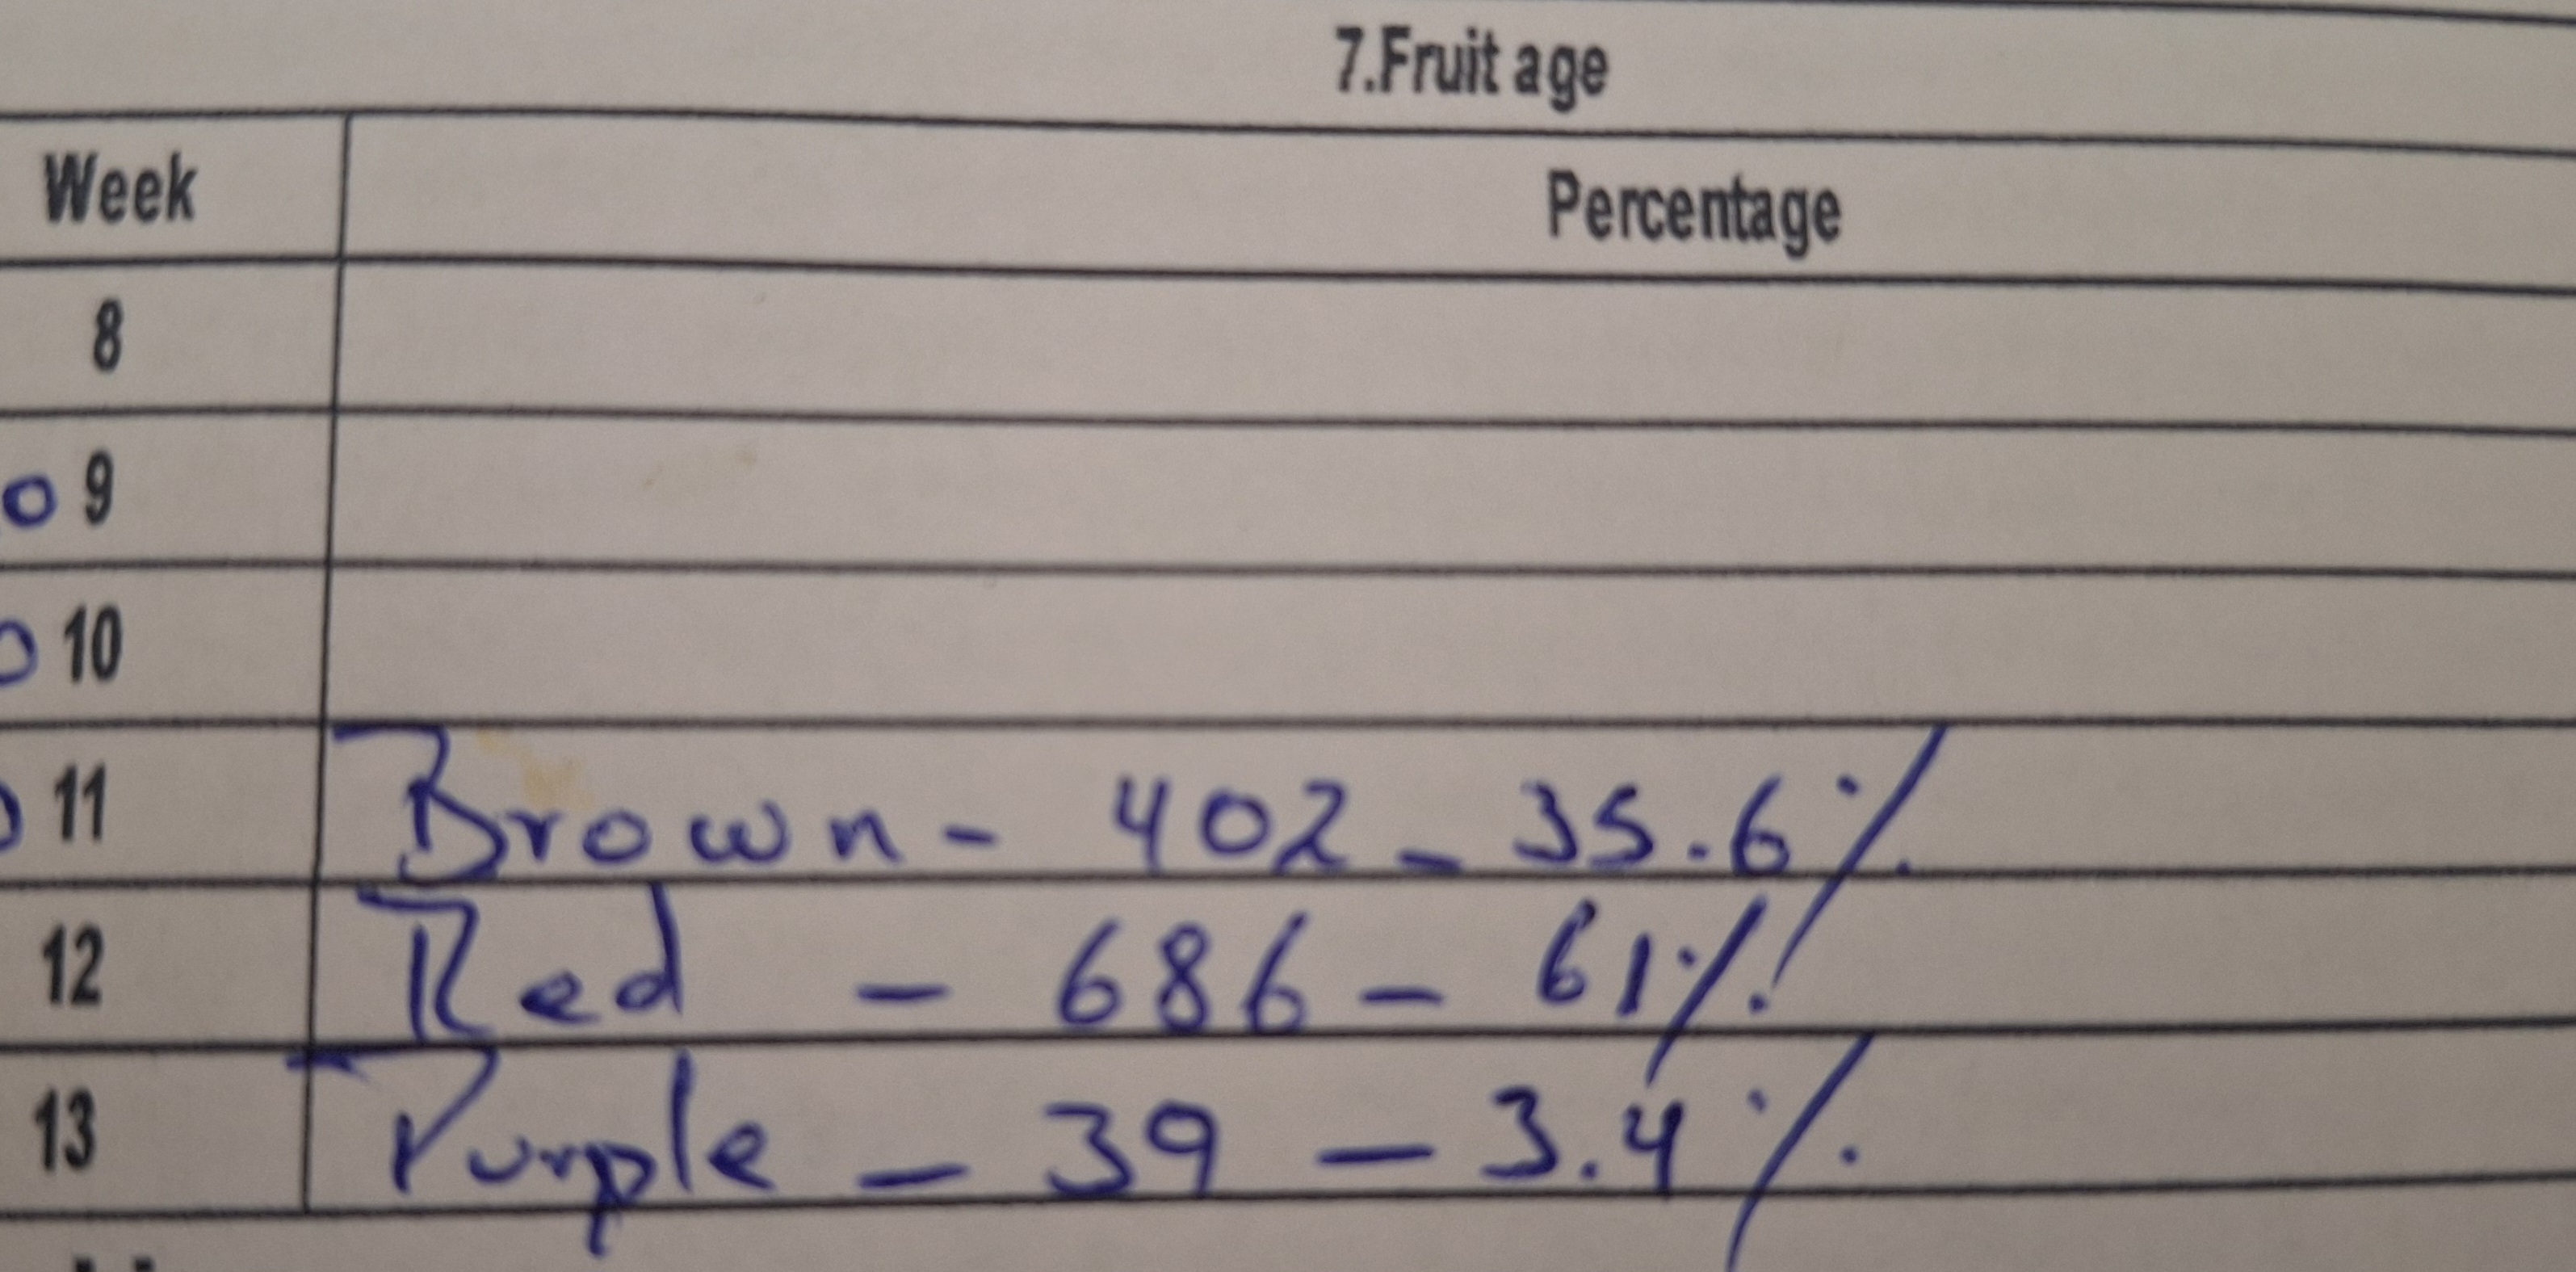 7.Fruit age
Week Percentage
8
o 9
10
11 Brown - 402 - 35.6%
12 Red - 686 - 61%
13 Purple - 39 - 3.4%